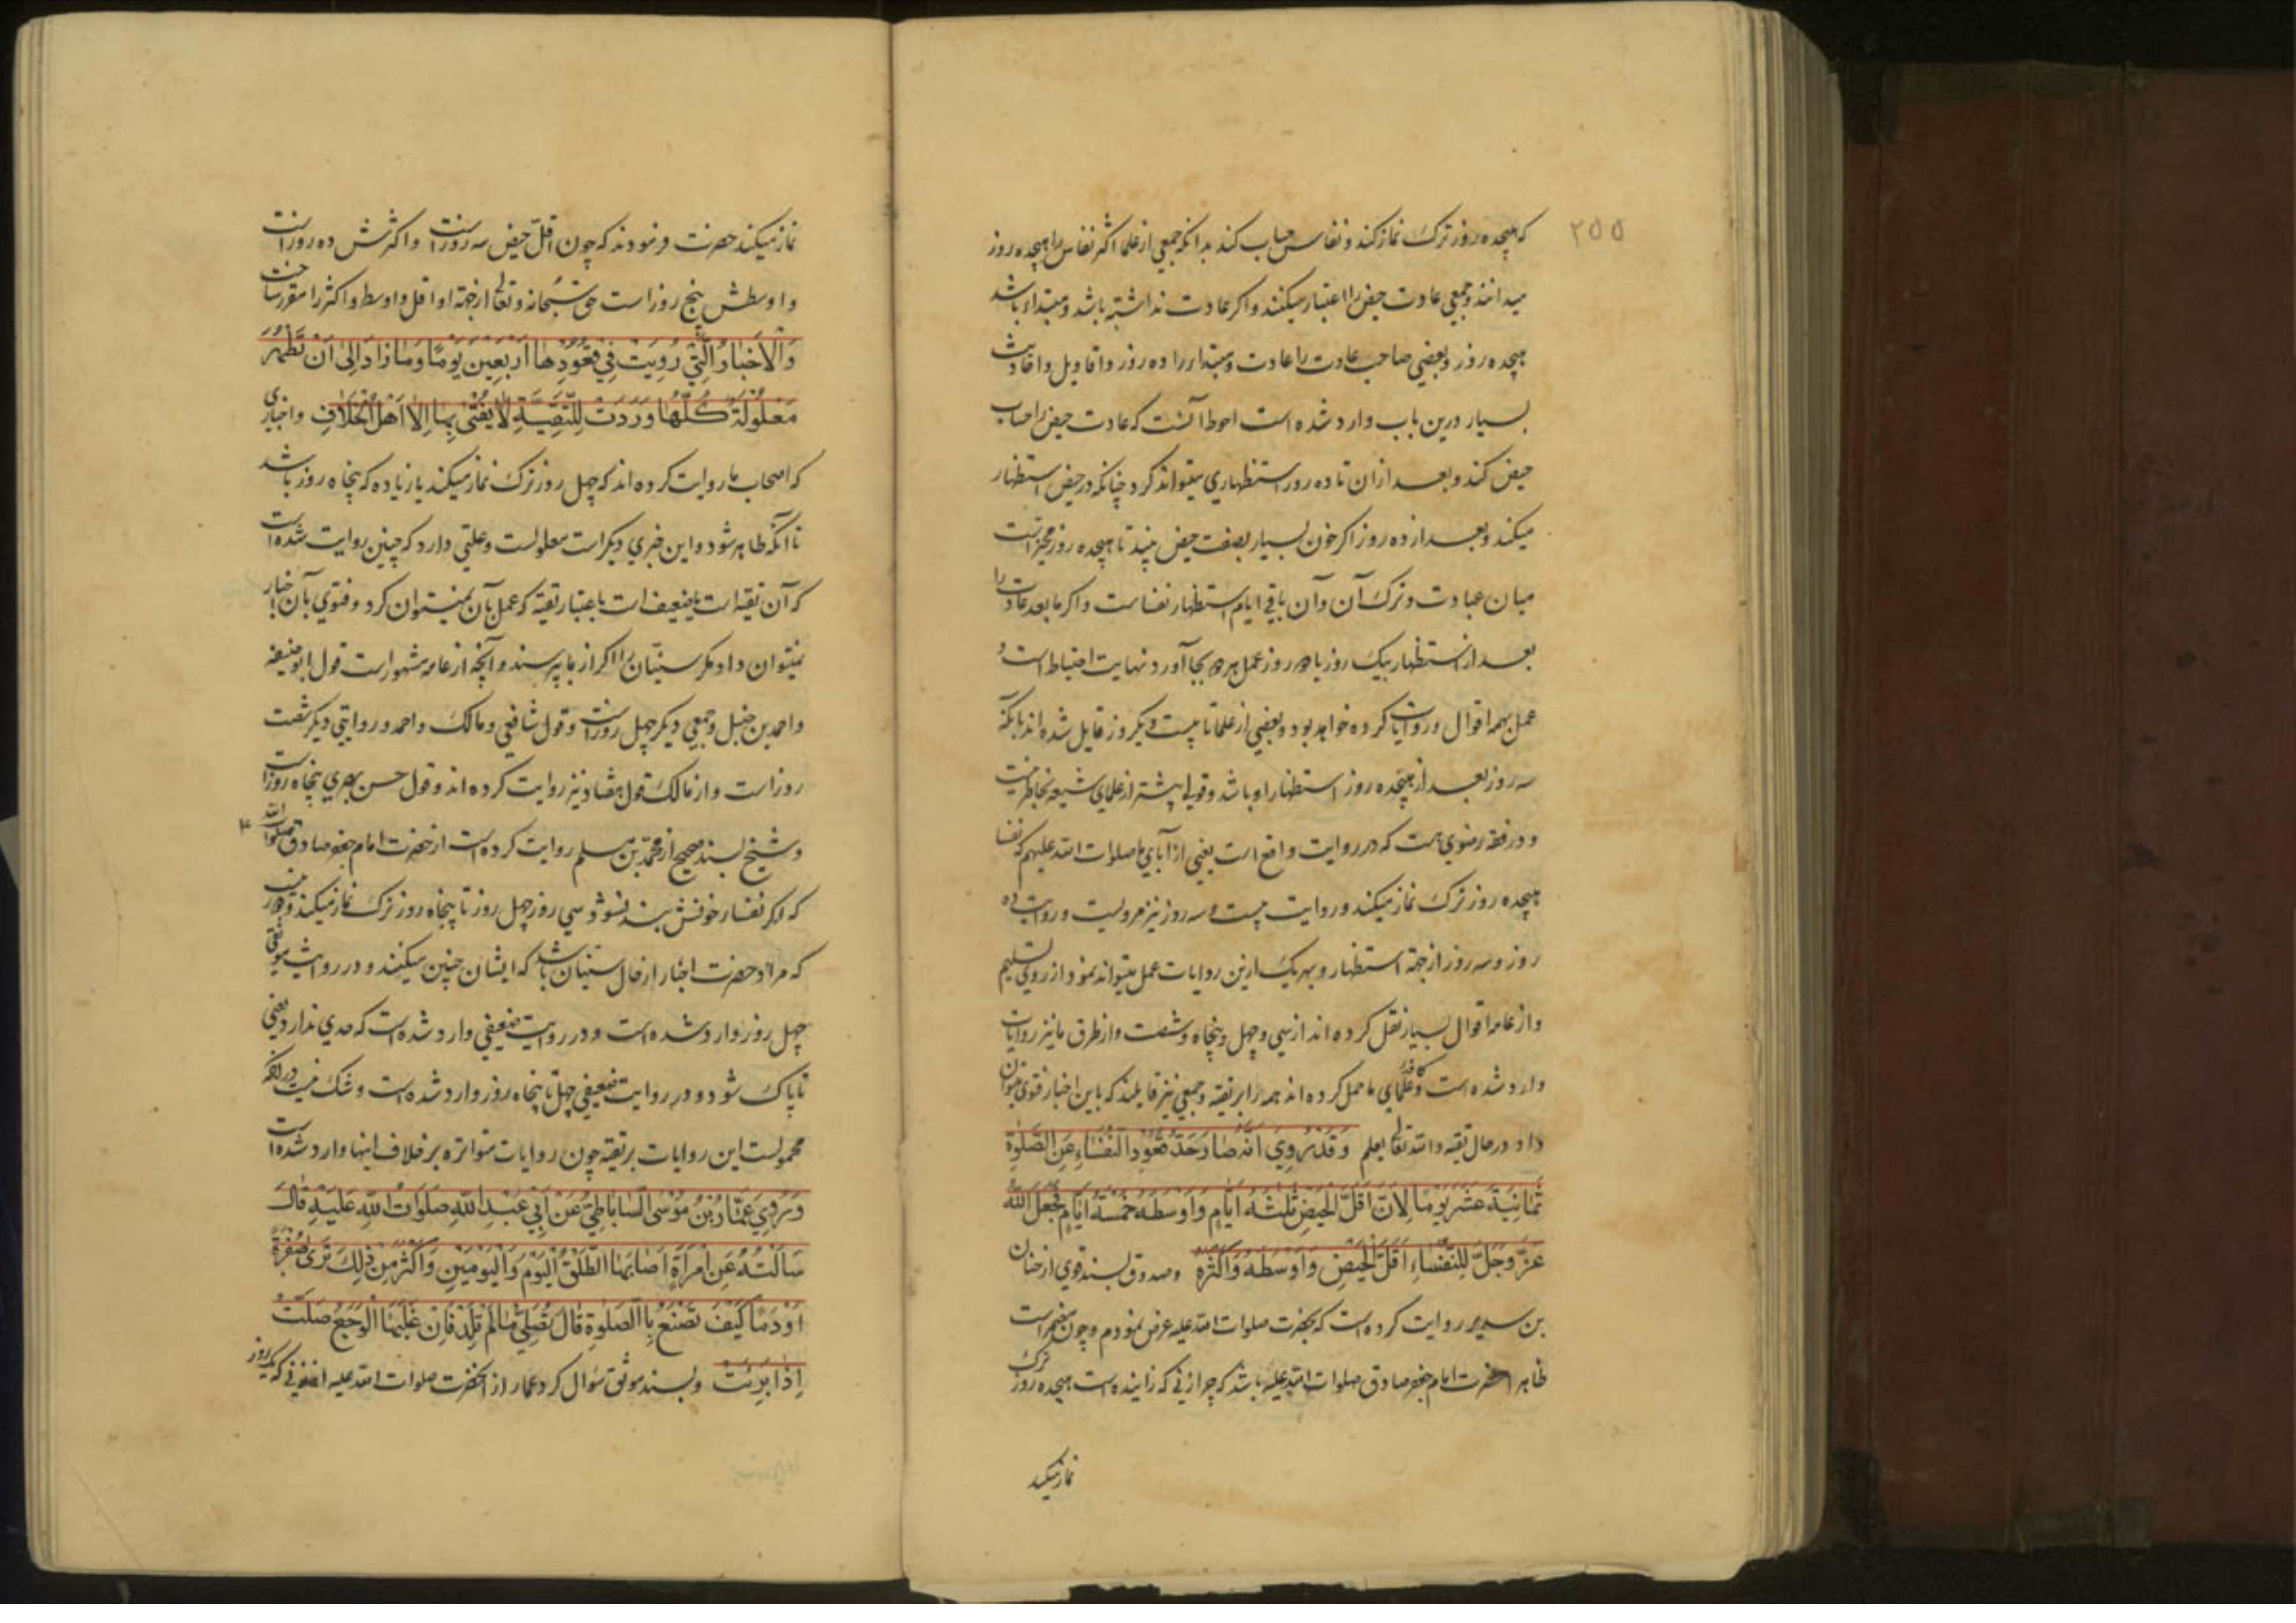 ۲۵۵
که هیجده روز ترک نماز کند و نفاس حساب کند بدانکه جمعی از علما اکثر نفاس را هیجده روز
میدانند و جمعی عادت حیض را اعتبار میکنند و اگر عادت نداشته باشد و مبتداه باشد
هیجده روز و بعضی صاحب عادت را عادت و مبتداه را ده روز و اقاویل و احادیث
بسیار درین باب وارد شده است احوط آنست که عادت حیض را حساب
حیض کند و بعد از ان تا ده روز استظهاری میتواند کرد چنانکه در حیض استظهار
میکند و بعد از ده روز اگر خون بسیار بصفت حیض بیند تا هیجده روز مخیر است
میان عبادت و ترک آن و آن باقی ایام استظهار نفاست و اگر ما بعد عادت را
بعد از استظهار بیک روز یا دو روز عمل هر دو بجا آورد نهایت احتیاط است و
عمل بهمه اقوال و روایات کرده خواهد بود و بعضی از علما تا بیست و یکروز قایل شده اند بآنکه
سه روز بعد از هیجده روز استظهار او باشد و قولی پیشتر از علمای شیعه بخاطر نیست
و در فقه رضوی هست که در روایت واقع است یعنی از آبای ما صلوات الله علیهم که نفسا
هیجده روز ترک نماز میکند و روایت بیست و سه روز نیز مرویست و روایت ده
روز و سه روز از جهة استظهار و بهر یک ازین روایات عمل میتواند نمود از روی تسلیم
و از عامه اقوال بسیار نقل کرده اند از سی و چهل و پنجاه و شصت و از طرق ما نیز روایات
وارد شده است و کافه علمای ما حمل کرده اند همه را بر تقیه و جمعی نیز قایلند که باین اخبار فتوی میتوان
داد در حال تقیه و الله تعالی یعلم وَقَدْ رُوِيَ اَنَّهُ صَارَ حَدُّ قُعُوْدِ النُّفَسَاءِ عَنِ الصَّلٰوةِ
ثَمَانِيَةَ عَشَرَ يَوْمًا لِاَنَّ اَقَلَّ الْحَيْضِ ثَلٰثَةُ اَيَّامٍ وَاَوْسَطَهُ خَمْسَةُ اَيَّامٍ فَجَعَلَ اللهُ
عَزَّ وَجَلَّ لِلنُّفَسَاءِ اَقَلَّ الْحَيْضِ وَاَوْسَطَهُ وَاَكْثَرَهُ و صدوق بسند قوی از حنان
بن سدیر روایت کرده است که بحضرت صلوات الله علیه عرض نمودم و چون مضمر است
ظاهرا حضرت امام جعفر صادق صلوات الله علیه باشد که چرا زنی که زاینده است هیجده روز ترک
نماز میکند
نماز میکند حضرت فرمودند که چون اقلّ حیض سه روز است و اکثرش ده روز است
و اوسطش پنج روز است حق سبحانه و تعالی از جهة او اقل و اوسط و اکثر را مقرر ساخت
وَالْاَخْبَارُ الَّتِيْ رُوِيَتْ فِيْ قُعُوْدِهَا اَرْبَعِيْنَ يَوْمًا وَمَا زَادَ اِلٰى اَنْ تَطْهُرَ
مَعْلُوْلَةٌ كُلُّهَا وَرَدَتْ لِلتَّقِيَّةِ لَا يُفْتٰى بِهَا اِلَّا اَهْلُ الْخِلَافِ و اخباری
که اصحاب ما روایت کرده اند که چهل روز ترک نماز میکند یا زیاده که پنجاه روز باشد
تا آنکه طاهر شود و این خبری دیگر است معلولست و علتی دارد که چنین روایت شده است
که آن تقیه است یا ضعیف است باعتبار تقیه که عمل بآن نمیتوان کرد و فتوی بآن اخبار
نمیتوان داد مگر سنیان را اگر از ما پرسند و آنچه از عامه مشهور است قول ابو حنیفه
و احمد بن حنبل و جمعی دیگر چهل روز است و قول شافعی و مالک و احمد در روایتی دیگر شصت
روز است و از مالک قول هفتاد نیز روایت کرده اند و قول حسن بصری پنجاه روز است
و شیخ بسند صحیح از محمد بن مسلم روایت کرده است از حضرت امام جعفر صادق صلوات الله
که اگر نفسا خونش بند نشود سی روز چهل روز تا پنجاه روز ترک نماز میکند و دور نیست
که مراد حضرت اخبار از حال سنیان باشد که ایشان چنین میکنند و در روایت موثقی
چهل روز وارد شده است و در روایت ضعیفی وارد شده است که حدی ندارد یعنی
تا پاک شود و در روایت ضعیفی چهل تا پنجاه روز وارد شده است و شک نیست در آنکه
محمولست این روایات بر تقیه چون روایات متواتره بر خلاف اینها وارد شده است
وَرَوٰى عَمَّارُ بْنُ مُوْسَى السَّابَاطِيُّ عَنْ اَبِيْ عَبْدِ اللهِ صَلَوَاتُ اللهِ عَلَيْهِ قَالَ
سَاَلْتُهُ عَنِ امْرَاَةٍ اَصَابَهَا الطَّلْقُ الْيَوْمَ وَالْيَوْمَيْنِ وَاَكْثَرَ مِنْ ذٰلِكَ تَرٰى صُفْرَةً
اَوْ دَمًا كَيْفَ تَصْنَعُ بِالصَّلٰوةِ قَالَ تُصَلِّيْ مَا لَمْ تَلِدْ فَاِنْ غَلَبَهَا الْوَجَعُ صَلَّتْ
اِذَا بَرِئَتْ و بسند موثق سؤال کرد عمار از آنحضرت صلوات الله علیه از زنی که یک روز